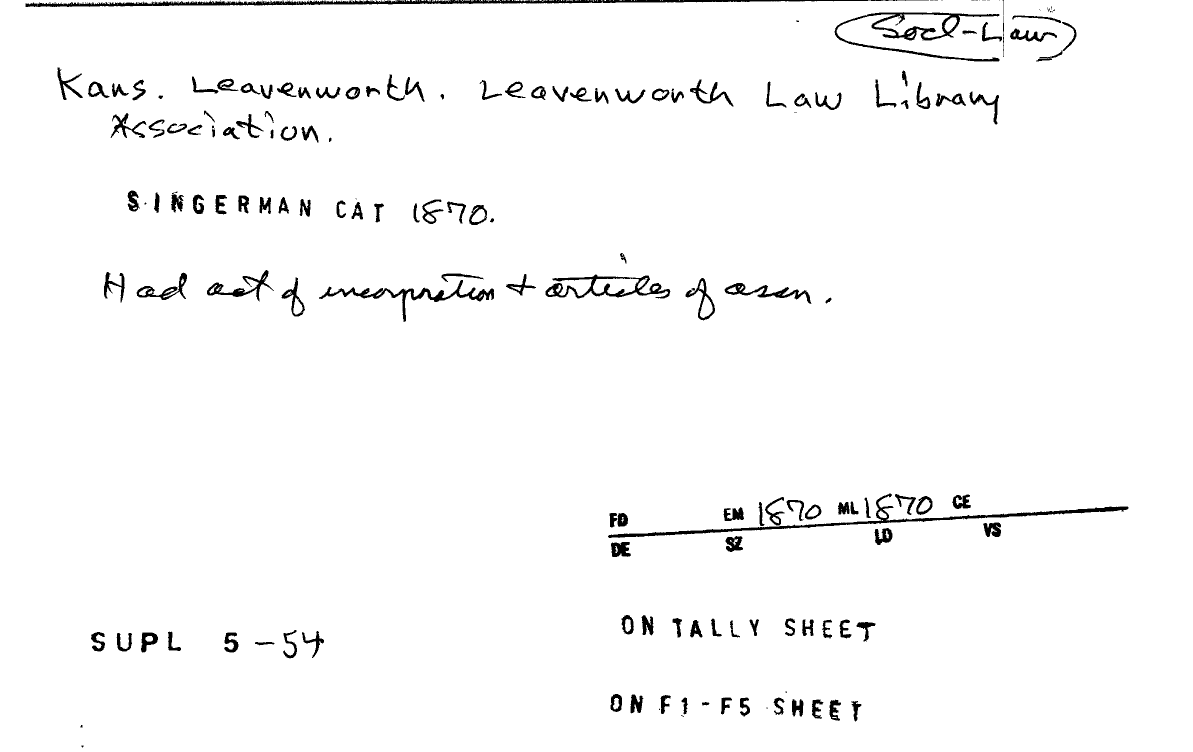 Socl-Law
Kans. Leavenworth. Leavenworth Law Library
Association.
SINGERMAN CAT 1870.
Had act of incorpration + articles of assn.
FD EM 1870 ML 1870 CE
DE SZ LD VS
SUPL 5-54
ON TALLY SHEET
ON F1-F5 SHEET